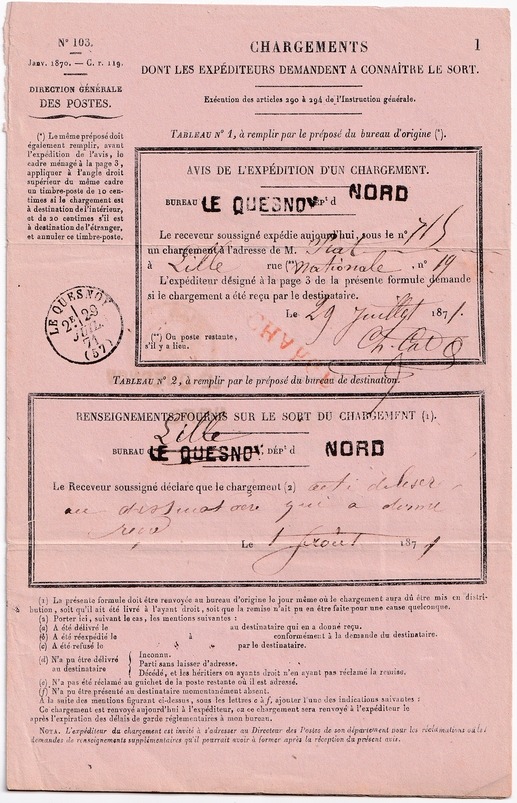 N° 103.
Janv. 1870. — C. r. 119.
DIRECTION GÉNÉRALE
DES POSTES.
(*) Le même préposé doit
également remplir, avant
l'expédition de l'avis, le
cadre ménagé à la page 3,
appliquer à l'angle droit
supérieur du même cadre
un timbre-poste de 10 cen-
times si le chargement est
à destination de l'intérieur,
et de 20 centimes s'il est
à destination de l'étranger,
et annuler ce timbre-poste.
LE QUESNOY
2E/29
JUIL.
71
(57)
CHARGEMENTS
1
DONT LES EXPÉDITEURS DEMANDENT A CONNAÎTRE LE SORT.
Exécution des articles 290 à 294 de l'Instruction générale.
TABLEAU N° 1, à remplir par le préposé du bureau d'origine (*).
AVIS DE L'EXPÉDITION D'UN CHARGEMENT.
BUREAU LE QUESNOY DÉPt d NORD
Le receveur soussigné expédie aujourd'hui, sous le n° 715
un chargement à l'adresse de M.
à Lille rue (**) Nationale, n° 19
L'expéditeur désigné à la page 3 de la présente formule demande
si le chargement a été reçu par le destinataire.
Le 29 Juillet 1871.
(**) Ou poste restante,
s'il y a lieu.
CHARGÉ
TABLEAU N° 2, à remplir par le préposé du bureau de destination.
RENSEIGNEMENTS FOURNIS SUR LE SORT DU CHARGEMENT (1).
Lille
BUREAU d LE QUESNOY DÉPt d NORD
Le Receveur soussigné déclare que le chargement (2) a été délivré
au destinataire qui a donné
reçu
Le 1 août 1871
(1) La présente formule doit être renvoyée au bureau d'origine le jour même où le chargement aura dû être mis en distri-
bution, soit qu'il ait été livré à l'ayant droit, soit que la remise n'ait pu en être faite pour une cause quelconque.
(2) Porter ici, suivant le cas, les mentions suivantes :
(a) A été délivré le au destinataire qui en a donné reçu.
(b) A été réexpédié le à conformément à la demande du destinataire.
(c) A été refusé le par le destinataire.
(d) N'a pu être délivré au destinataire
Inconnu.
Parti sans laisser d'adresse.
Décédé, et les héritiers ou ayants droit n'en ayant pas réclamé la remise.
(e) N'a pas été réclamé au guichet de la poste restante où il est adressé.
(f) N'a pu être présenté au destinataire momentanément absent.
A la suite des mentions figurant ci-dessus, sous les lettres c à f, ajouter l'une des indications suivantes :
Ce chargement est renvoyé aujourd'hui à l'expéditeur, ou ce chargement sera renvoyé à l'expéditeur le
après l'expiration des délais de garde réglementaires à mon bureau.
NOTA. L'expéditeur du chargement est invité à s'adresser au Directeur des Postes de son département pour les réclamations ou les
demandes de renseignements supplémentaires qu'il pourrait avoir à former après la réception du présent avis.